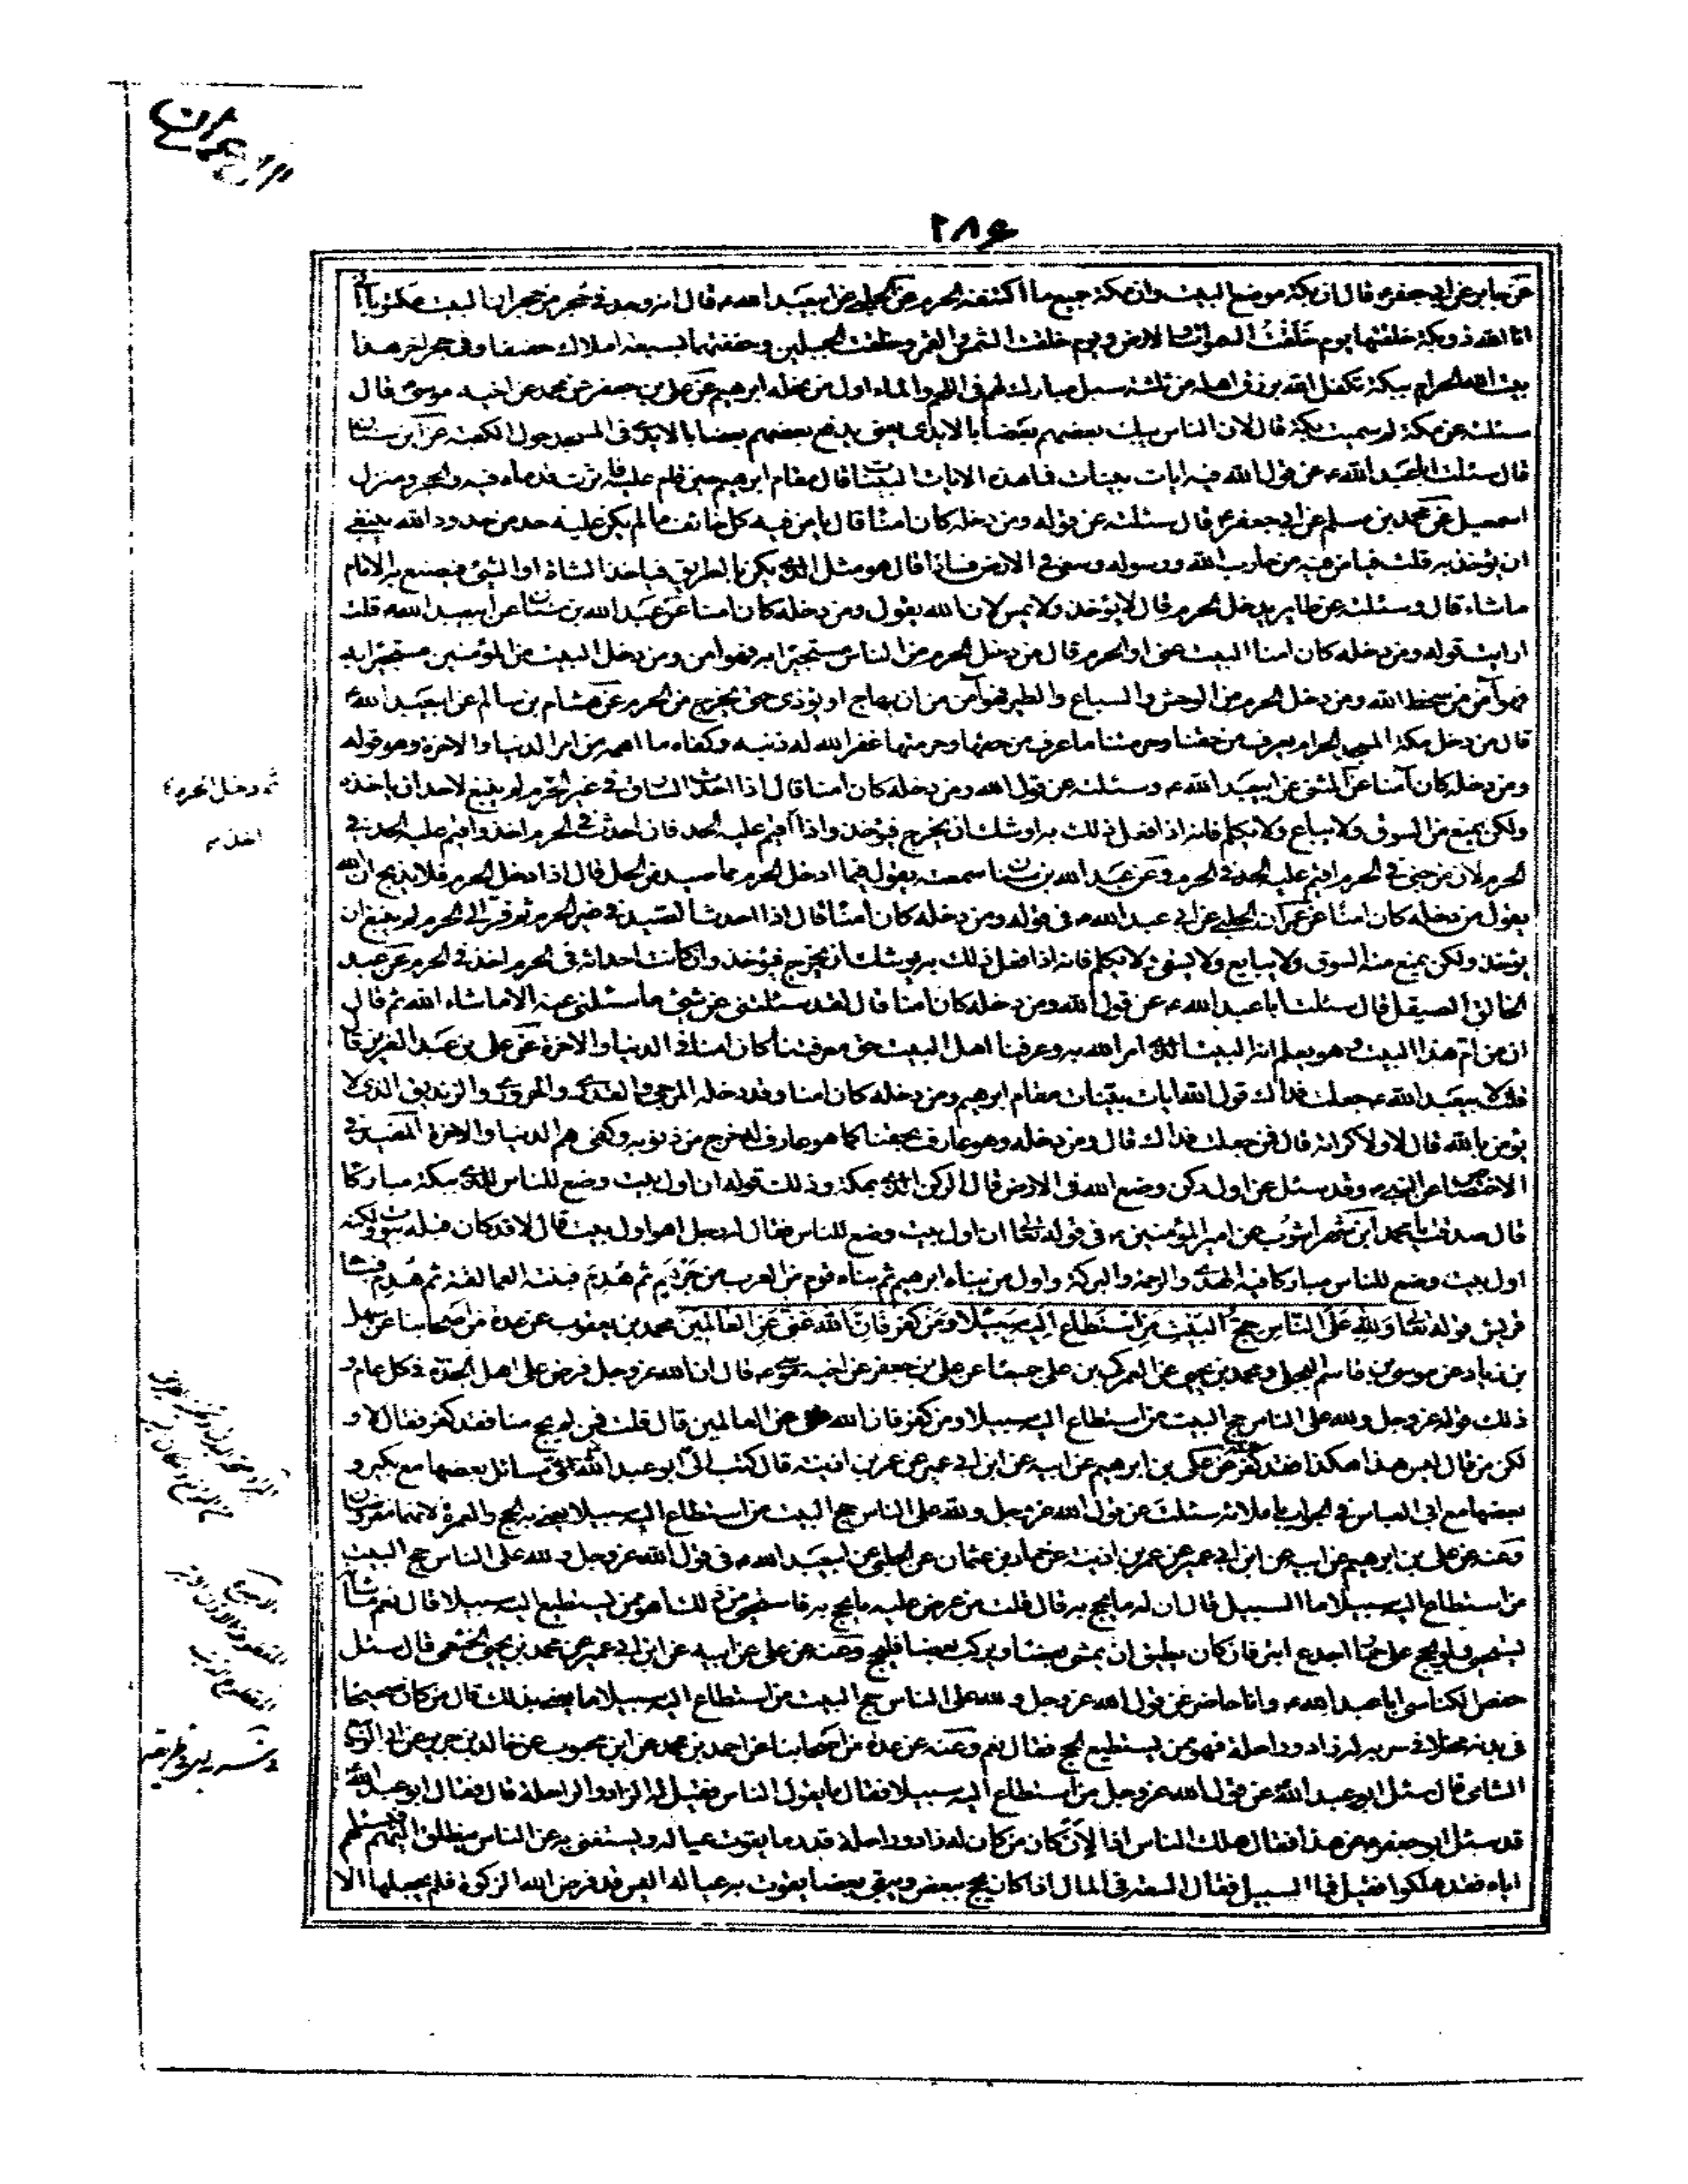 ال عمران
٢٨۶
عن جابر عن ابى جعفر ع قال ان بكة موضع البيت وان مكة جميع ما اكتنفه الحرم عن الحلبى عن ابيعبد الله ع قال انه وجد فى حجر من حجرات البيت مكتوبا انى
انا الله ذو بكة خلقتها يوم خلقت السموات والارض ويوم خلقت الشمس والقمر وخلقت الجبلين وحففتهما بسبعة املاك حفيفا وفى حجر اخر هذا
بيت الله الحرام ببكة تكفل الله برزق اهله من ثلثة سبل مبارك لهم فى اللحم والماء اول من نحله ابرهيم عن على بن جعفر بن محمد عن اخيه موسى ع قال
سئلته عن مكة لم سميت بكة قال لان الناس يبك بعضهم بعضا بالايدى يعنى يدفع بعضهم بعضا بالايدى فى المسجد حول الكعبة عن ابن سنان
قال سئلت ابا عبد الله ع عن قول الله فيه ايات بينات فما هذه الايات البينات قال مقام ابرهيم حين قام عليه فاثرت قدماه فيه والحجر ومنزل
اسمعيل عن محمد بن مسلم عن ابى جعفر ع قال سئلته عن قوله ومن دخله كان امنا قال يامن فيه كل خائف ما لم يكن عليه حد من حدود الله ينبغى
ان يؤخذ به قلت فيامن فيه من حارب الله ورسوله وسعى فى الارض فسادا قال هو مثل الذى يكن بالطريق فياخذ الشاة او الشئ فيصنع به الامام
ماشاء قال وسئلته عن طاير يدخل الحرم قال لا يؤخذ ولا يمس لان الله يقول ومن دخله كان امنا عن عبد الله بن سنان عن ابيعبد الله ع قلت
ارايت قوله ومن دخله كان امنا البيت عنى او الحرم قال من دخل الحرم من الناس مستجيرا به فهو امن ومن دخل البيت من المؤمنين مستجيرا به
فهو آمن من سخط الله ومن دخل الحرم من الوحش والسباع والطير فهو آمن من ان يهاج او يؤذى حتى يخرج من الحرم عن هشام بن سالم عن ابيعبد الله ع
قال من دخل مكة المسجد الحرام يعرف من حقنا وحرمتنا ما عرف من حقها وحرمتها غفر الله له ذنبه وكفاه ما اهمه من امر الدنيا والاخرة وهو قوله
ومن دخله كان آمنا عن المثنى عن ابيعبد الله ع وسئلته عن قول الله ومن دخله كان امنا قال اذا احدث السارق فى غير الحرم لم ينبغ لاحد ان ياخذه
ولكن يمنع من السوق ولا يباع ولا يكلم فانه اذا فعل ذلك به اوشك ان يخرج فيؤخذ واذا اقيم عليه الحد فان احدث فى الحرم اخذ واقيم عليه الحد فى
الحرم لان من جنى فى الحرم اقيم عليه الحد فى الحرم وعن عبد الله بن سنان سمعته يقول فيما ادخل الحرم مما صيد فى الحل قال اذا دخل الحرم فلا يذبح ان الله
يقول من دخله كان امنا عن عمران الحلبى عن ابى عبد الله ع فى قوله ومن دخله كان امنا قال اذا احدث العبد فى غير الحرم ثم فر الى الحرم لم ينبغ ان
يؤخذ ولكن يمنع منه السوق ولا يبايع ولا يسقى ولا يكلم فانه اذا فعل ذلك به يوشك ان يخرج فيؤخذ وان كانت احداثه فى الحرم اخذ فى الحرم عن عبد
الخالق الصيقل قال سئلت ابا عبد الله ع عن قول الله ومن دخله كان امنا قال لقد سئلتنى عن شئ ما سئلنى عنه الا ماشاء الله ثم قال
ان من ام هذا البيت وهو يعلم انه البيت الذى امر الله به وعرفنا اهل البيت حق معرفتنا كان امنا فى الدنيا والاخرة عن على بن عبد العزيز قال
قلت لابيعبد الله ع جعلت فداك قول الله ايات بينات مقام ابرهيم ومن دخله كان امنا وقد دخله المرجئ والقدرى والحرورى والزنديق الذى لا
يؤمن بالله قال لا ولا كرامة قال فمن جعلت فداك قال ومن دخله وهو عارف بحقنا كما هو عارف له خرج من ذنوبه وكفى هم الدنيا والاخرة المفيد فى
الاختصاص وقد سئل عن اول ركن وضع الله فى الارض قال الركن الذى بمكة وذلك قوله ان اول بيت وضع للناس للذى ببكة مباركا
قال صدقت يا محمد ابن شهراشوب عن امير المؤمنين ع فى قوله تعالى ان اول بيت وضع للناس فقال له رجل اهو اول بيت قال لا قد كان قبله بيوت ولكنه
اول بيت وضع للناس مباركا فيه الهدى والرحمة والبركة واول من بناه ابرهيم ثم بناه قوم من العرب من جرهم ثم هدم فبنته العمالقة ثم هدم فبناه
قريش قوله تعالى ولله على الناس حج البيت من استطاع اليه سبيلا ومن كفر فان الله غنى عن العالمين محمد بن يعقوب عن عدة من اصحابنا عن سهل
بن زياد عن موسى بن قاسم البجلى ومحمد بن يحيى عن العمركى بن على جميعا عن على بن جعفر عن اخيه موسى ع قال ان الله عز وجل فرض على اهل الجدة فى كل عام و
ذلك قوله عز وجل ولله على الناس حج البيت من استطاع اليه سبيلا ومن كفر فان الله غنى عن العالمين قال قلت فمن لم يحج منا فقد كفر فقال لا و
لكن من قال ليس هذا هكذا فقد كفر وعنه عن على بن ابرهيم عن ابيه عن ابن ابى عمير عن عمر بن اذينة قال كتب الى ابو عبد الله ع فى مسائل بعضها مع بكير و
بعضها مع ابى العباس فجاء الجواب باملائه سئلت عن قول الله عز وجل ولله على الناس حج البيت من استطاع اليه سبيلا يعنى به الحج والعمرة لانهما مفروضان
وعنه عن على بن ابرهيم عن ابيه عن ابن ابى عمير عن عمر بن اذينة عن حماد بن عثمان عن الحلبى عن ابيعبد الله ع فى قول الله عز وجل ولله على الناس حج البيت
من استطاع اليه سبيلا ما السبيل قال ان له ما يحج به قال قلت من عرض عليه ما يحج به فاستحيى من ذلك اهو ممن يستطيع اليه سبيلا قال نعم ما شأنه
يستحيى ولو يحج على حمار اجدع ابتر فان كان يطيق ان يمشى بعضا ويركب بعضا فليحج وعنه عن على عن ابيه عن ابن ابى عمير عن محمد بن يحيى الخثعمى قال سئل
حفص الكناسى ابا عبد الله ع وانا حاضر عن قول الله عز وجل ولله على الناس حج البيت من استطاع اليه سبيلا ما يعنى بذلك قال من كان صحيحا
فى بدنه مخلا فى سربه له زاد وراحلة فهو ممن يستطيع الحج فقال نعم وعنه عن عدة من اصحابنا عن احمد بن محمد عن ابن محبوب عن خالد بن جرير عن ابى الربيع
الشامى قال سئل ابو عبد الله ع عن قول الله عز وجل من استطاع اليه سبيلا فقال ما يقول الناس فقيل له الزاد والراحلة قال فقال ابو عبد الله ع
قد سئل ابو جعفر ع عن هذا فقال هلك الناس اذا لان كان من كان له زاد وراحلة قدر ما يقوت عياله ويستغنى به عن الناس ينطلق اليهم فيسئلهم
اياه فقد هلكوا فقيل فما السبيل فقال السعة فى المال اذا كان يحج ببعض ويبقى بعضا يقوت به عياله اليس قد فرض الله الزكوة فلم يجعلها الا
ثم دخل الحرم
اخذ